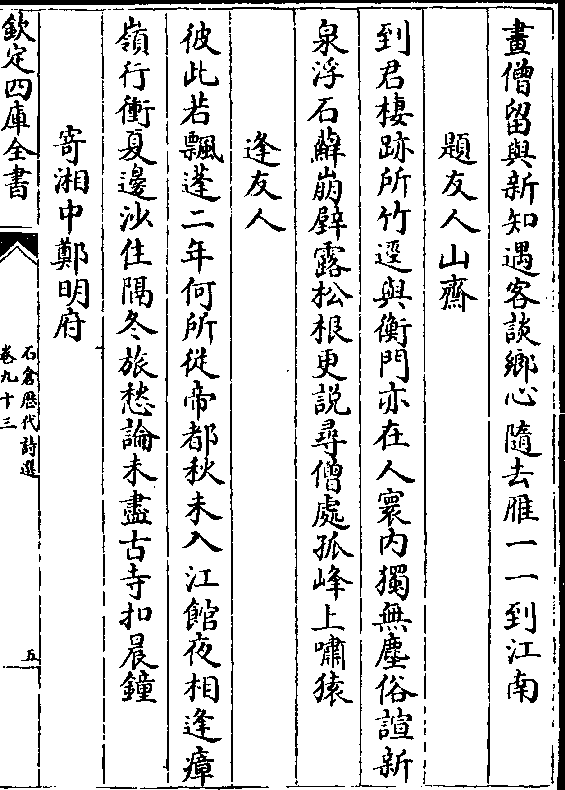 畫僧留與新知遇客談鄉心隨去雁一一到江南
題友人山齋
到君棲跡所竹逕與衡門亦在人寰内獨無塵俗諠新
泉浮石蘚崩壁露松根更説尋僧處孤峰上嘯猿
逢友人
彼此若飄蓬二年何所從帝都秋未入江館夜相逢瘴
嶺行衝夏邊沙住隔冬旅愁論未盡古寺扣晨鐘
寄湘中鄭明府
欽定四庫全書
石倉歴代詩選
卷九十三
五